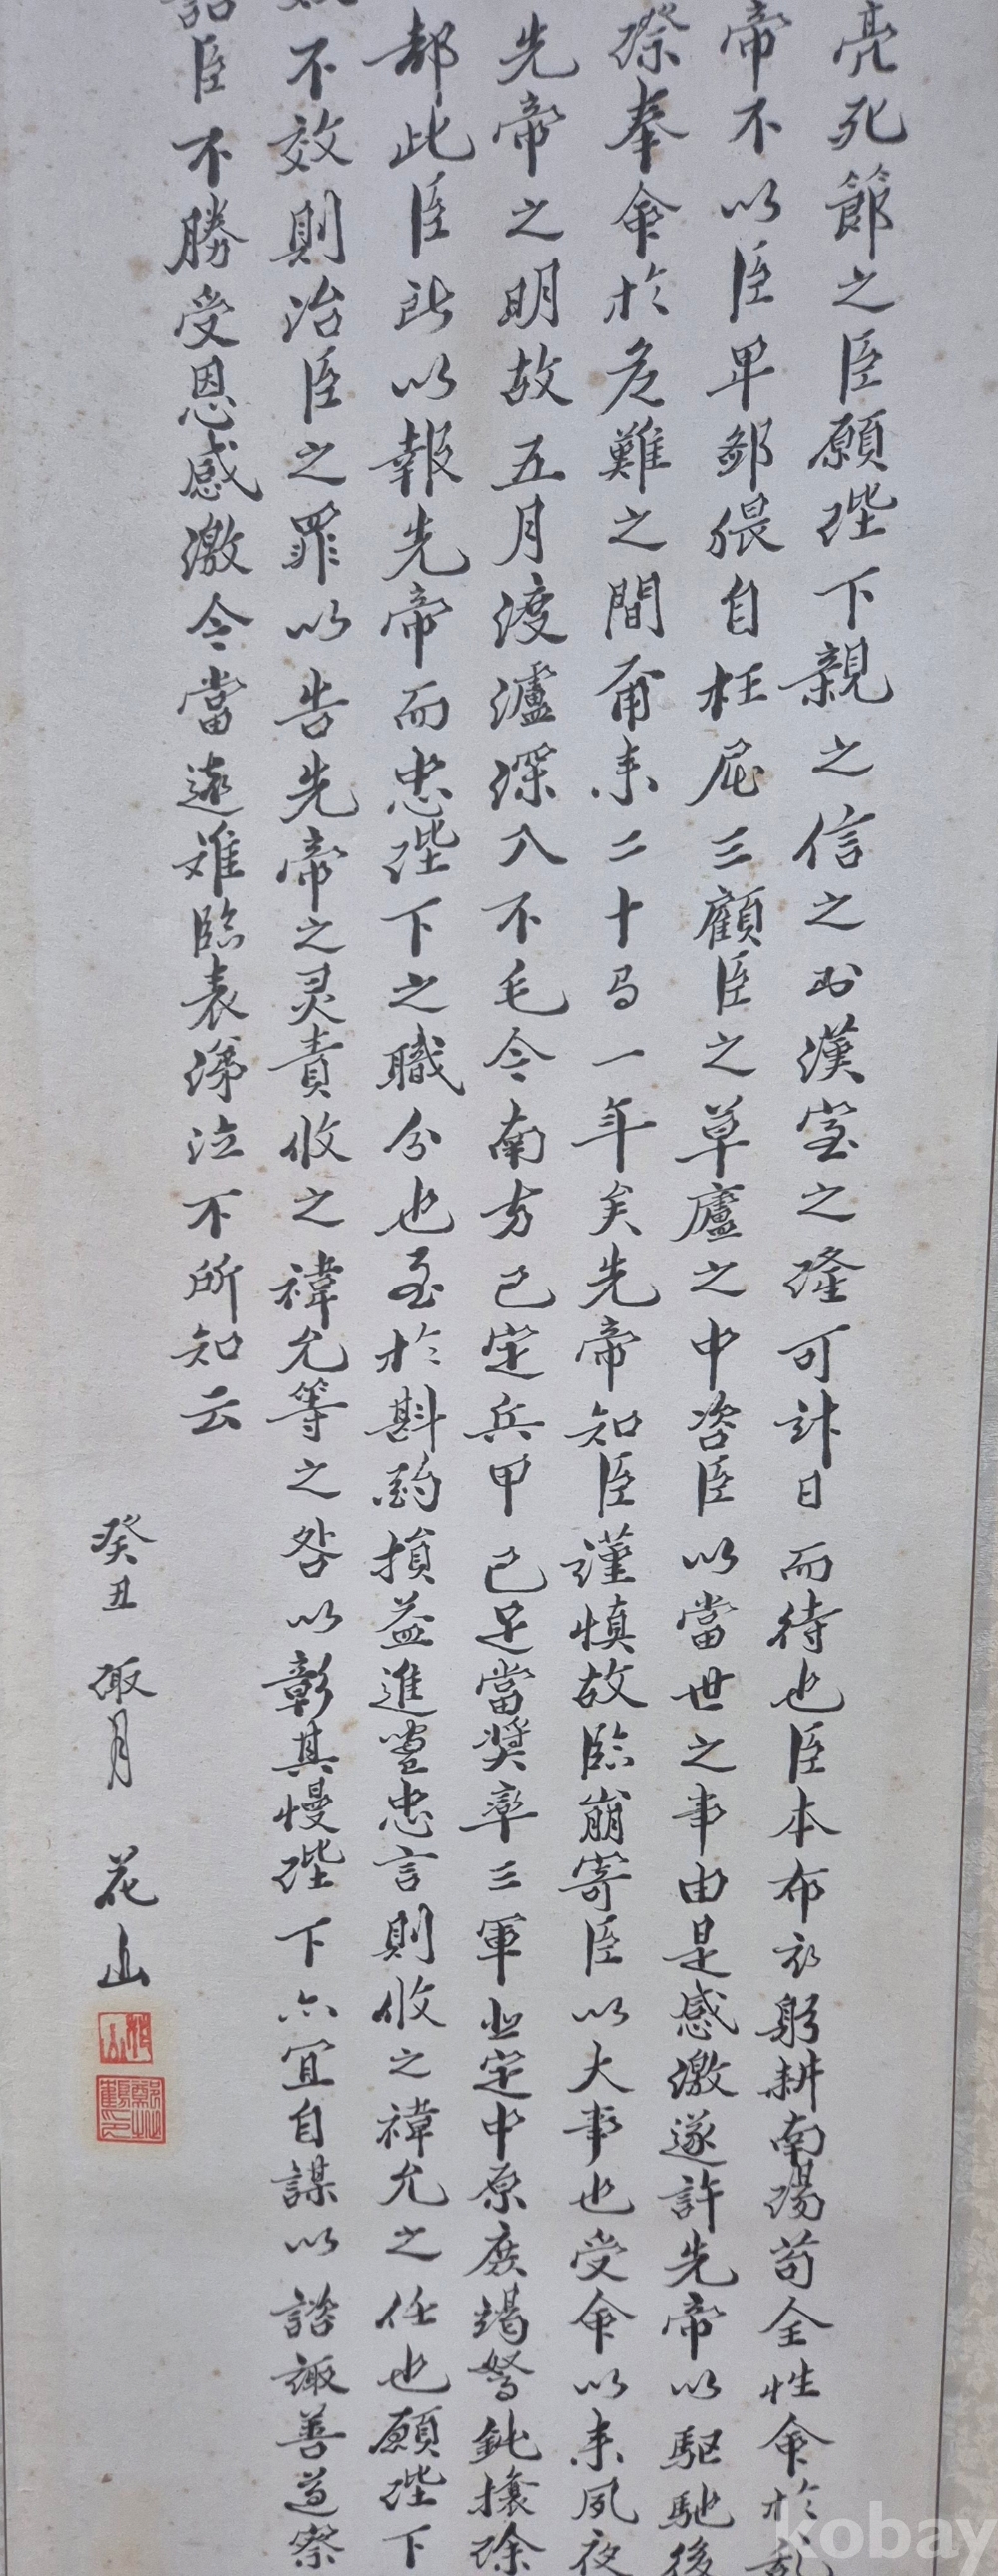 亮死節之臣願陛下親之信之則漢室之隆可計日而待也臣本布衣躬耕南陽苟全性命於亂
帝不以臣卑鄙猥自枉屈三顧臣之草廬之中咨臣以當世之事由是感激遂許先帝以驅馳後
際奉命於危難之間爾来二十有一年矣先帝知臣謹慎故臨崩寄臣以大事也受命以来夙夜
先帝之明故五月渡瀘深入不毛今南方已定兵甲已足當奬率三軍北定中原庶竭駑鈍攘除
都此臣所以報先帝而忠陛下之職分也至於斟酌損益進盡忠言則攸之禕允之任也願陛下
不效則治臣之罪以告先帝之灵責攸之禕允等之咎以彰其慢陛下亦宜自謀以諮諏善道察
詔臣不勝受恩感激今當遠難臨表涕泣不所知云
癸丑 菊月 花山
kobay